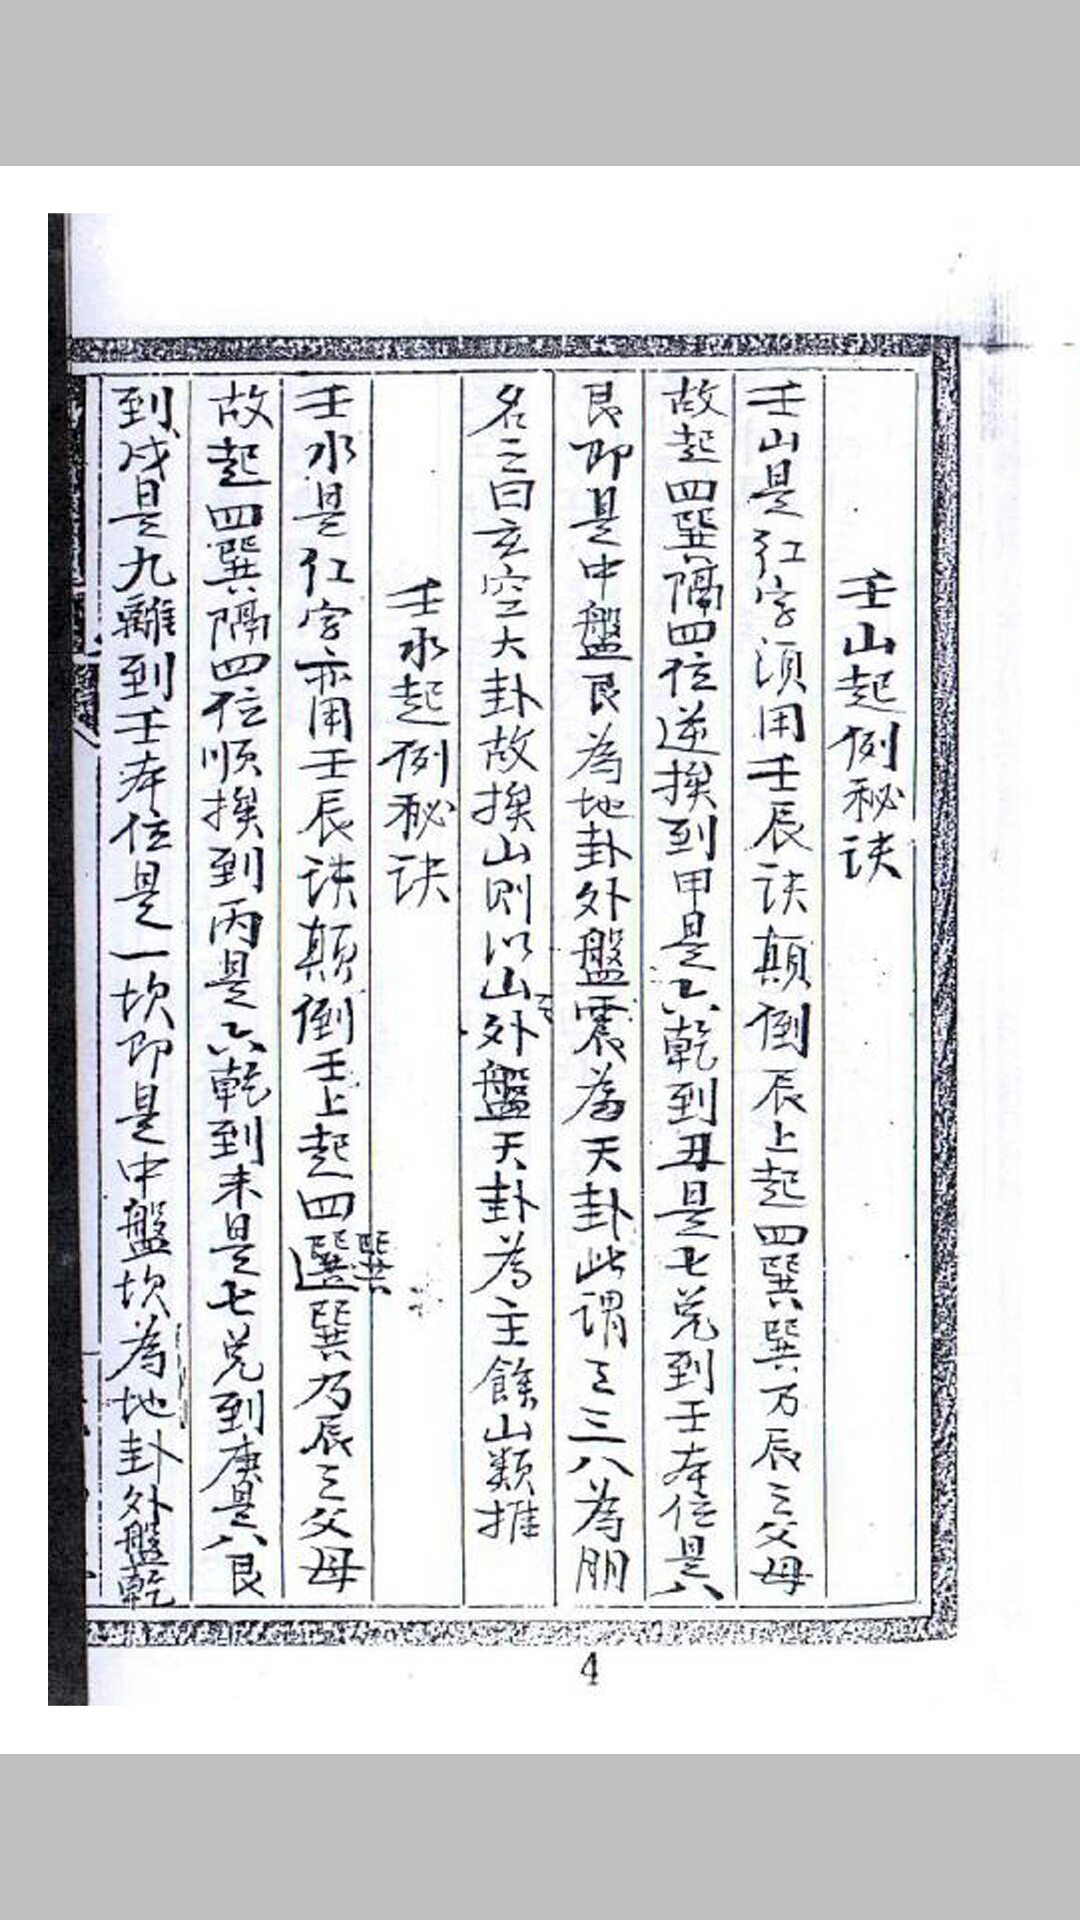 壬山起例秘诀
壬山是红字須用壬辰诀顛倒辰上起四巽巽乃辰之父母
故起四巽隔四位逆挨到甲是六乾到丑是七兑到壬本位是八
艮即是中盤艮為地卦外盤震為天卦此谓之三八為朋
名之曰玄空大卦故挨山则以山之外盤天卦為主餘山類推
壬水起例秘诀
壬水是红字亦用壬辰诀顛倒壬上起四巽巽乃辰之父母
故起四巽隔四位順挨到丙是六乾到未是七兑到庚是八艮
到戌是九離到壬本位是一坎即是中盤坎為地卦外盤乾
4